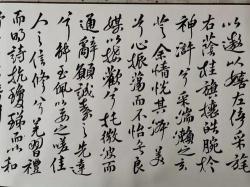 以遨以嬉左倚采旄
右蔭桂旗攘皓腕於
神滸兮采湍瀨之玄
芝余情悅其淑美
兮心振蕩而不怡無良
媒以接歡兮托微波而
通辭願誠素之先達
兮解玉佩以要之嗟佳
人之信修兮羌習禮
而明詩抗瓊珶以和